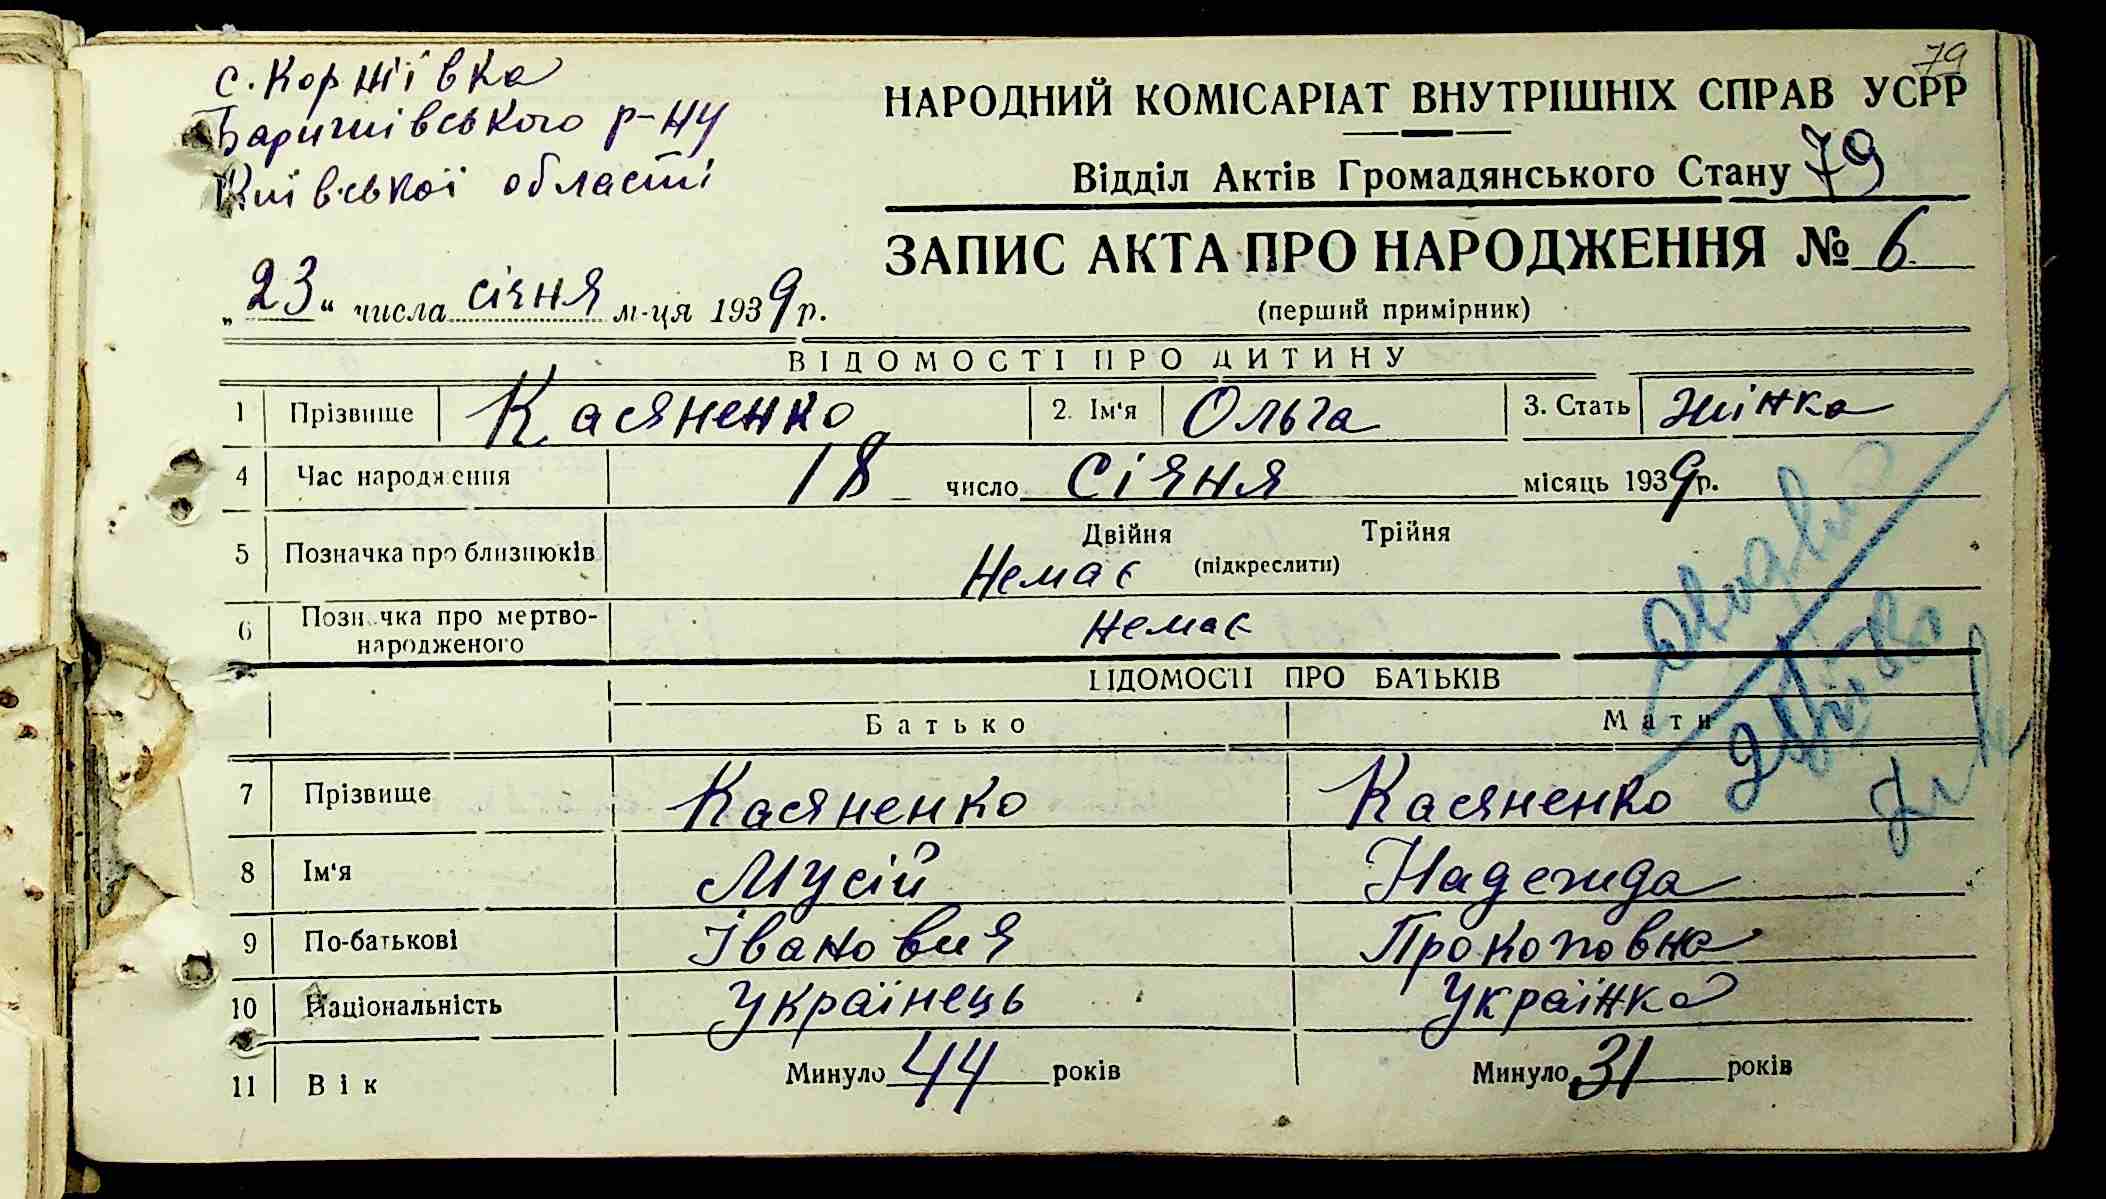 79
с. Коржівка
Баришівського р-ну
Київської області
НАРОДНИЙ КОМІСАРІАТ ВНУТРІШНІХ СПРАВ УСРР
Відділ Актів Громадянського Стану 79
ЗАПИС АКТА ПРО НАРОДЖЕННЯ № 6
(перший примірник)
„23“ числа січня м-ця 1939 р.
ВІДОМОСТІ ПРО ДИТИНУ
1 Прізвище Касяненко 2. Ім'я Ольга 3. Стать жінка
4 Час народження 18 число січня місяць 1939 р.
5 Позначка про близнюків Двійня Трійня
Немає (підкреслити)
6 Позначка про мертво-
народженого немає
ВІДОМОСТІ ПРО БАТЬКІВ
Батько Мати
7 Прізвище Касяненко Касяненко
8 Ім'я Мусій Надежда
9 По-батькові Іванович Прокоповна
10 Національність Українець Українка
11 Вік Минуло 44 років Минуло 31 років